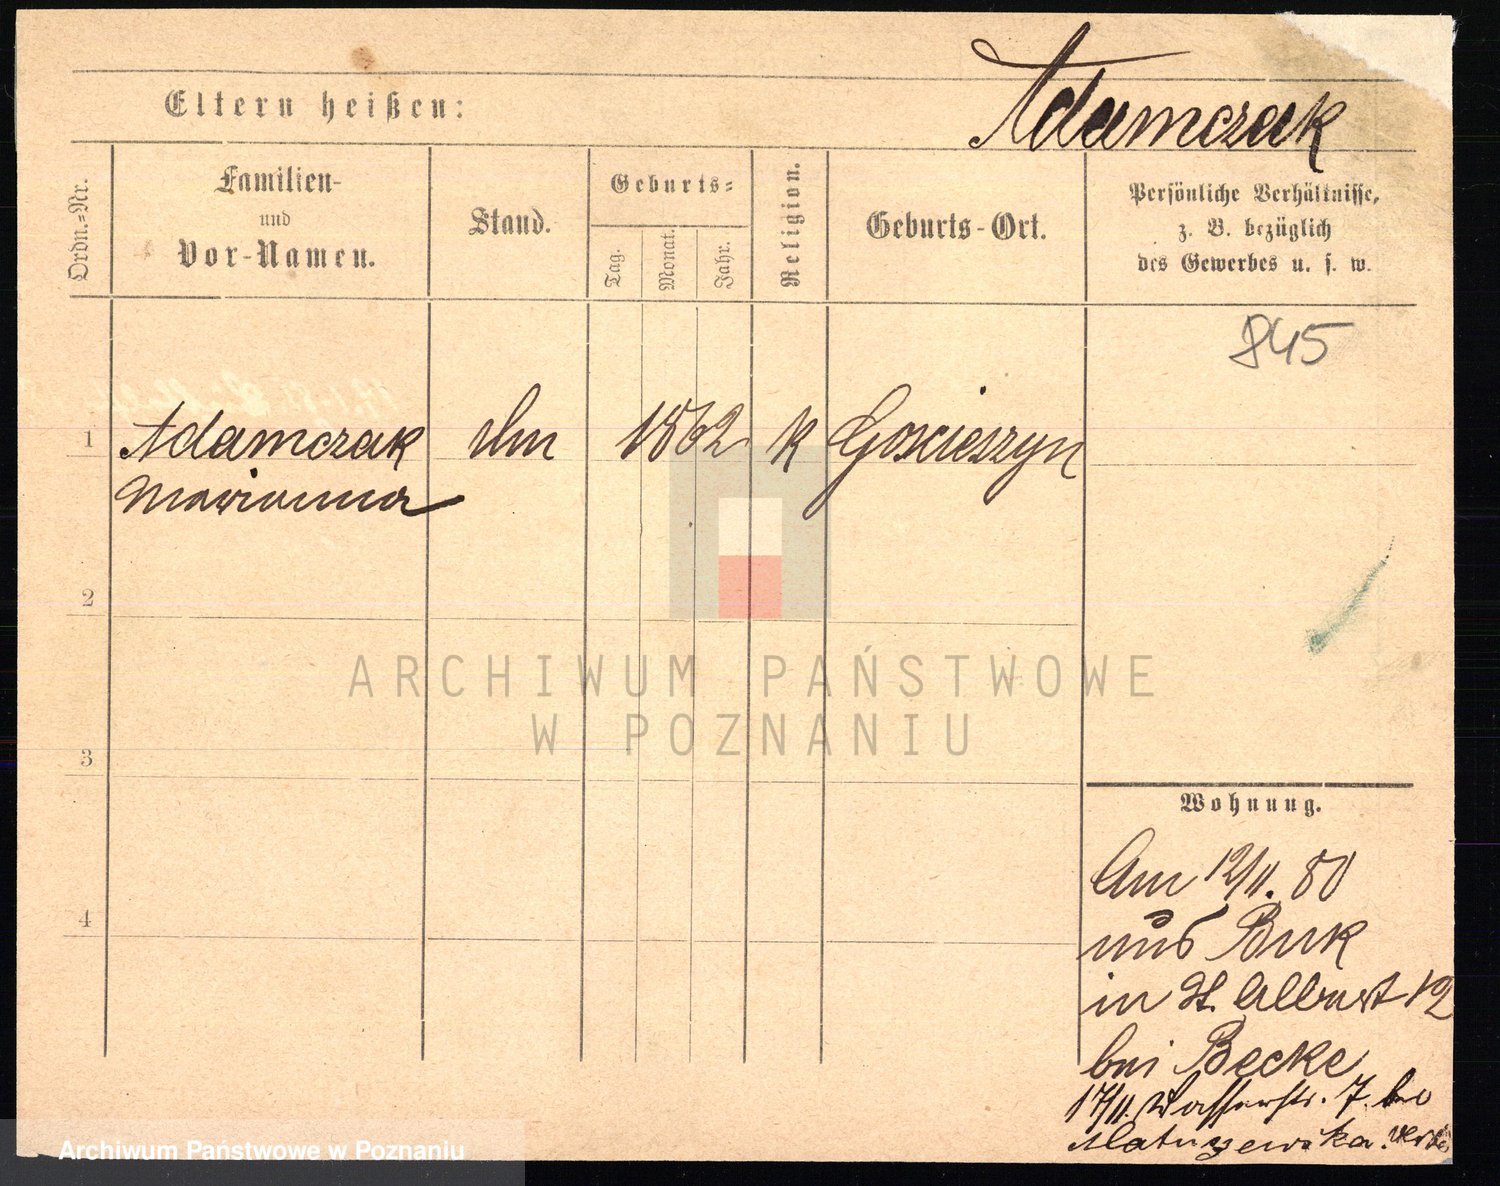 Adamczak
Eltern heißen:
Ordn.=Nr.
Familien-
und
Vor-Namen.
Stand.
Geburts=
Tag.
Monat.
Jahr.
Religion.
Geburts-Ort.
Persönliche Verhältnisse,
z. B. bezüglich
des Gewerbes u. s. w.
845
1
Adamczak
Marianna
1862
K
Goscieszyn
2
3
4
ARCHIWUM PAŃSTWOWE
W POZNANIU
Wohnung.
Am 12/11. 80
aus Buk
in St. Adalbert 12
bei Becke
17/11. Wasserstr. 7. bei
Matuszewska.
Archiwum Państwowe w Poznaniu